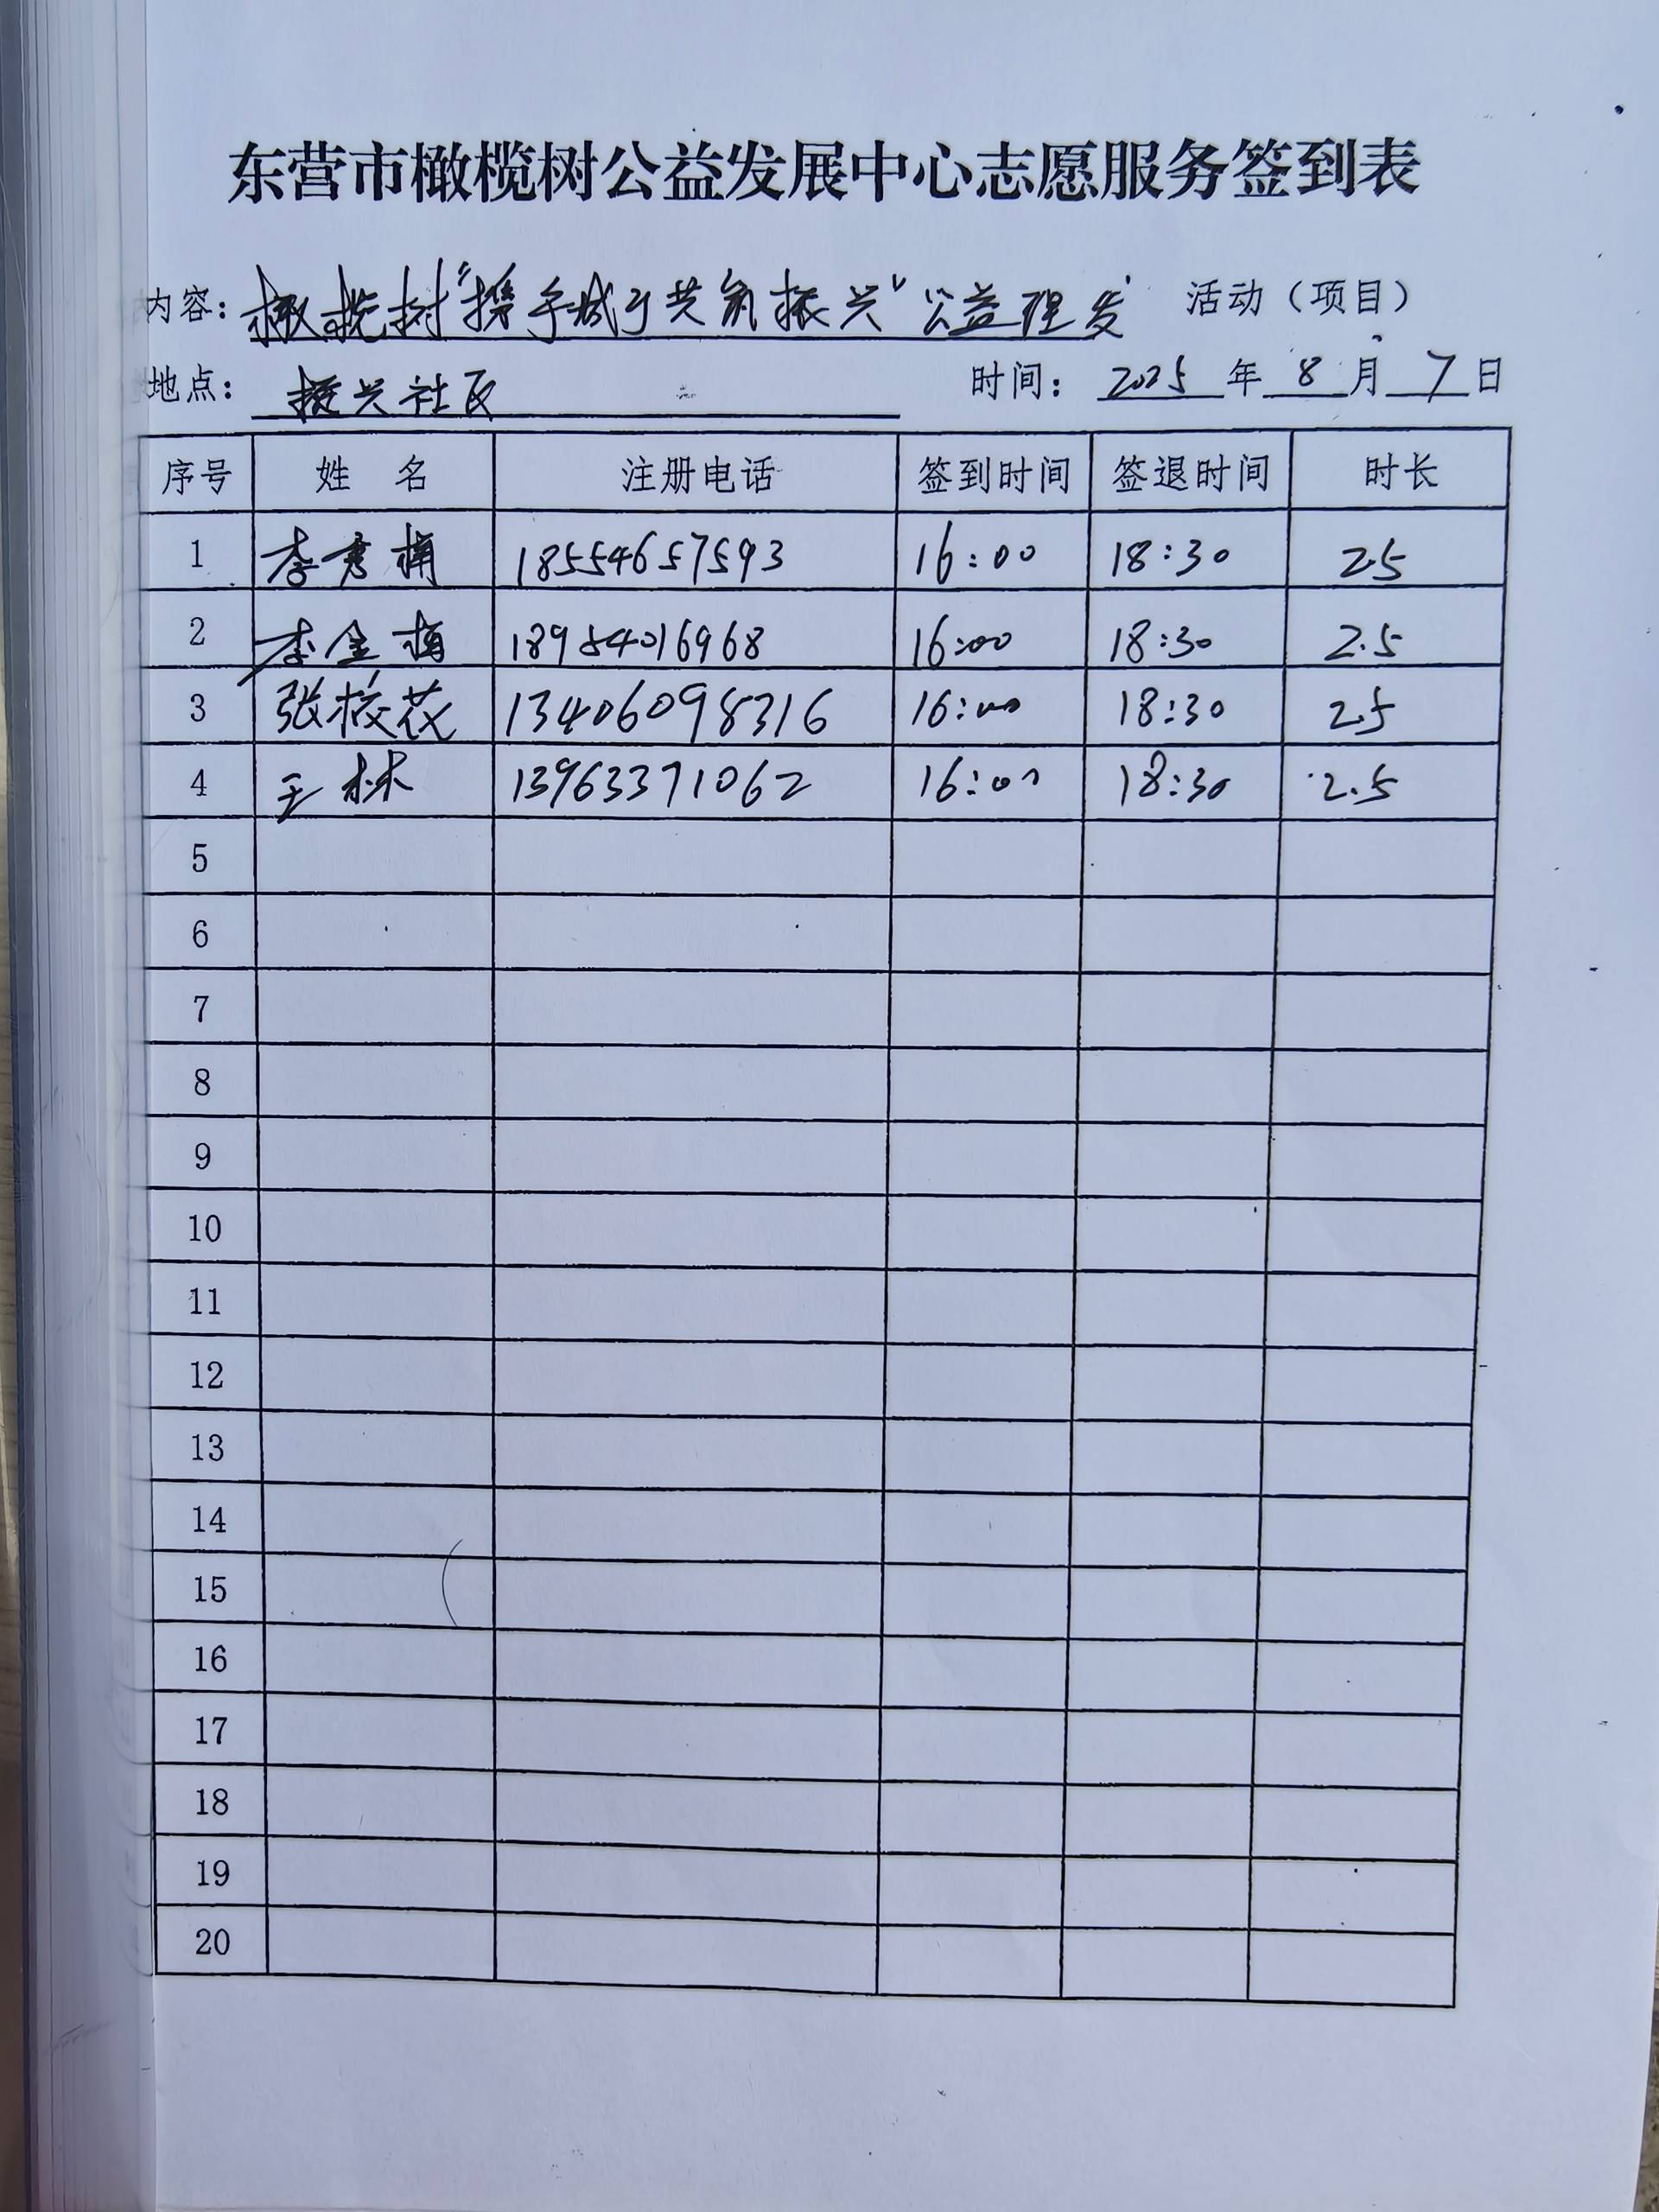 东营市橄榄树公益发展中心志愿服务签到表
内容：橄榄树“携手城宁共筑振兴”公益理发 活动（项目）
地点：振兴社区 时间：2025 年 8 月 7 日
序号 姓 名 注册电话 签到时间 签退时间 时长
1 李秀 18554657593 16:00 18:30 2.5
2 李金梅 18954016968 16:00 18:30 2.5
3 张校花 13406098316 16:00 18:30 2.5
4 王林 13963371062 16:00 18:30 2.5
5
6
7
8
9
10
11
12
13
14
15
16
17
18
19
20